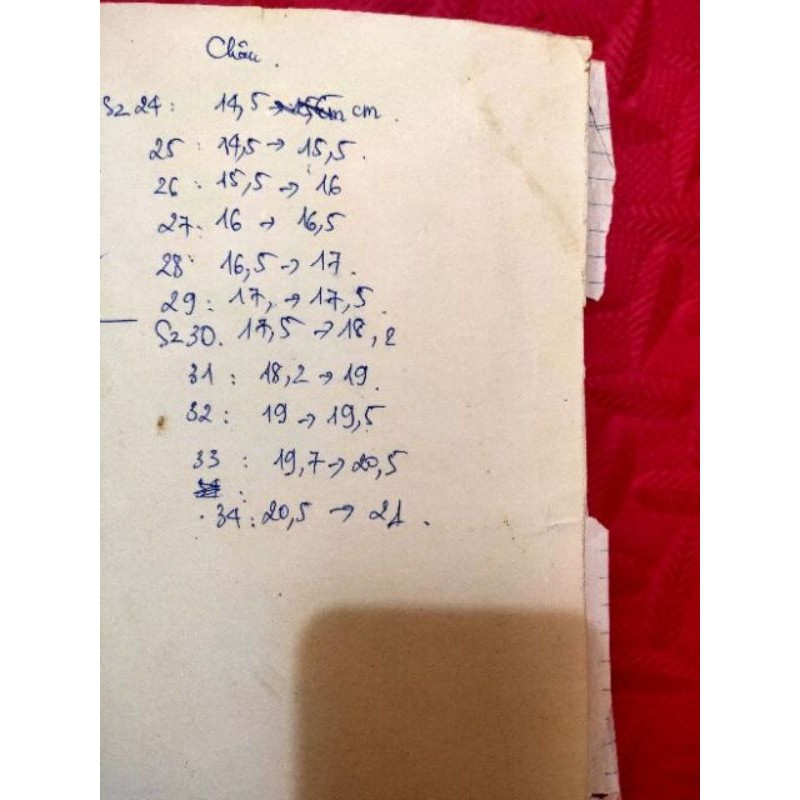 Chân.
Sz 24: 14,5 cm.
25: 14,5 → 15,5.
26: 15,5 → 16
27: 16 → 16,5
28: 16,5 → 17.
29: 17, → 17,5.
Sz 30. 17,5 → 18,2
31: 18,2 → 19.
32: 19 → 19,5
33: 19,7 → 20,5
34: 20,5 → 21.